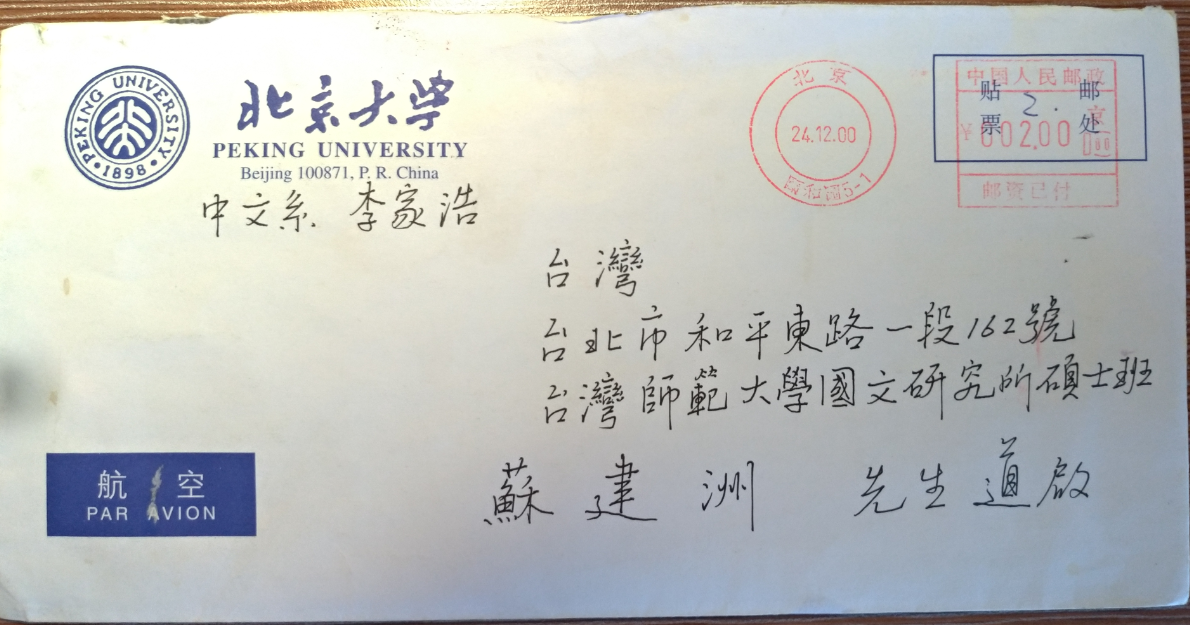 PEKING UNIVERSITY
·1898·
北京大学
PEKING UNIVERSITY
Beijing 100871, P. R. China
中文系 李家浩
北京
24.12.00
颐和園5-1
中国人民邮政
贴 邮
票 处
2.
京
¥002.00
邮资已付
台灣
台北市和平東路一段162號
台灣師範大學國文研究所碩士班
蘇建洲 先生道啟
航空
PAR AVION